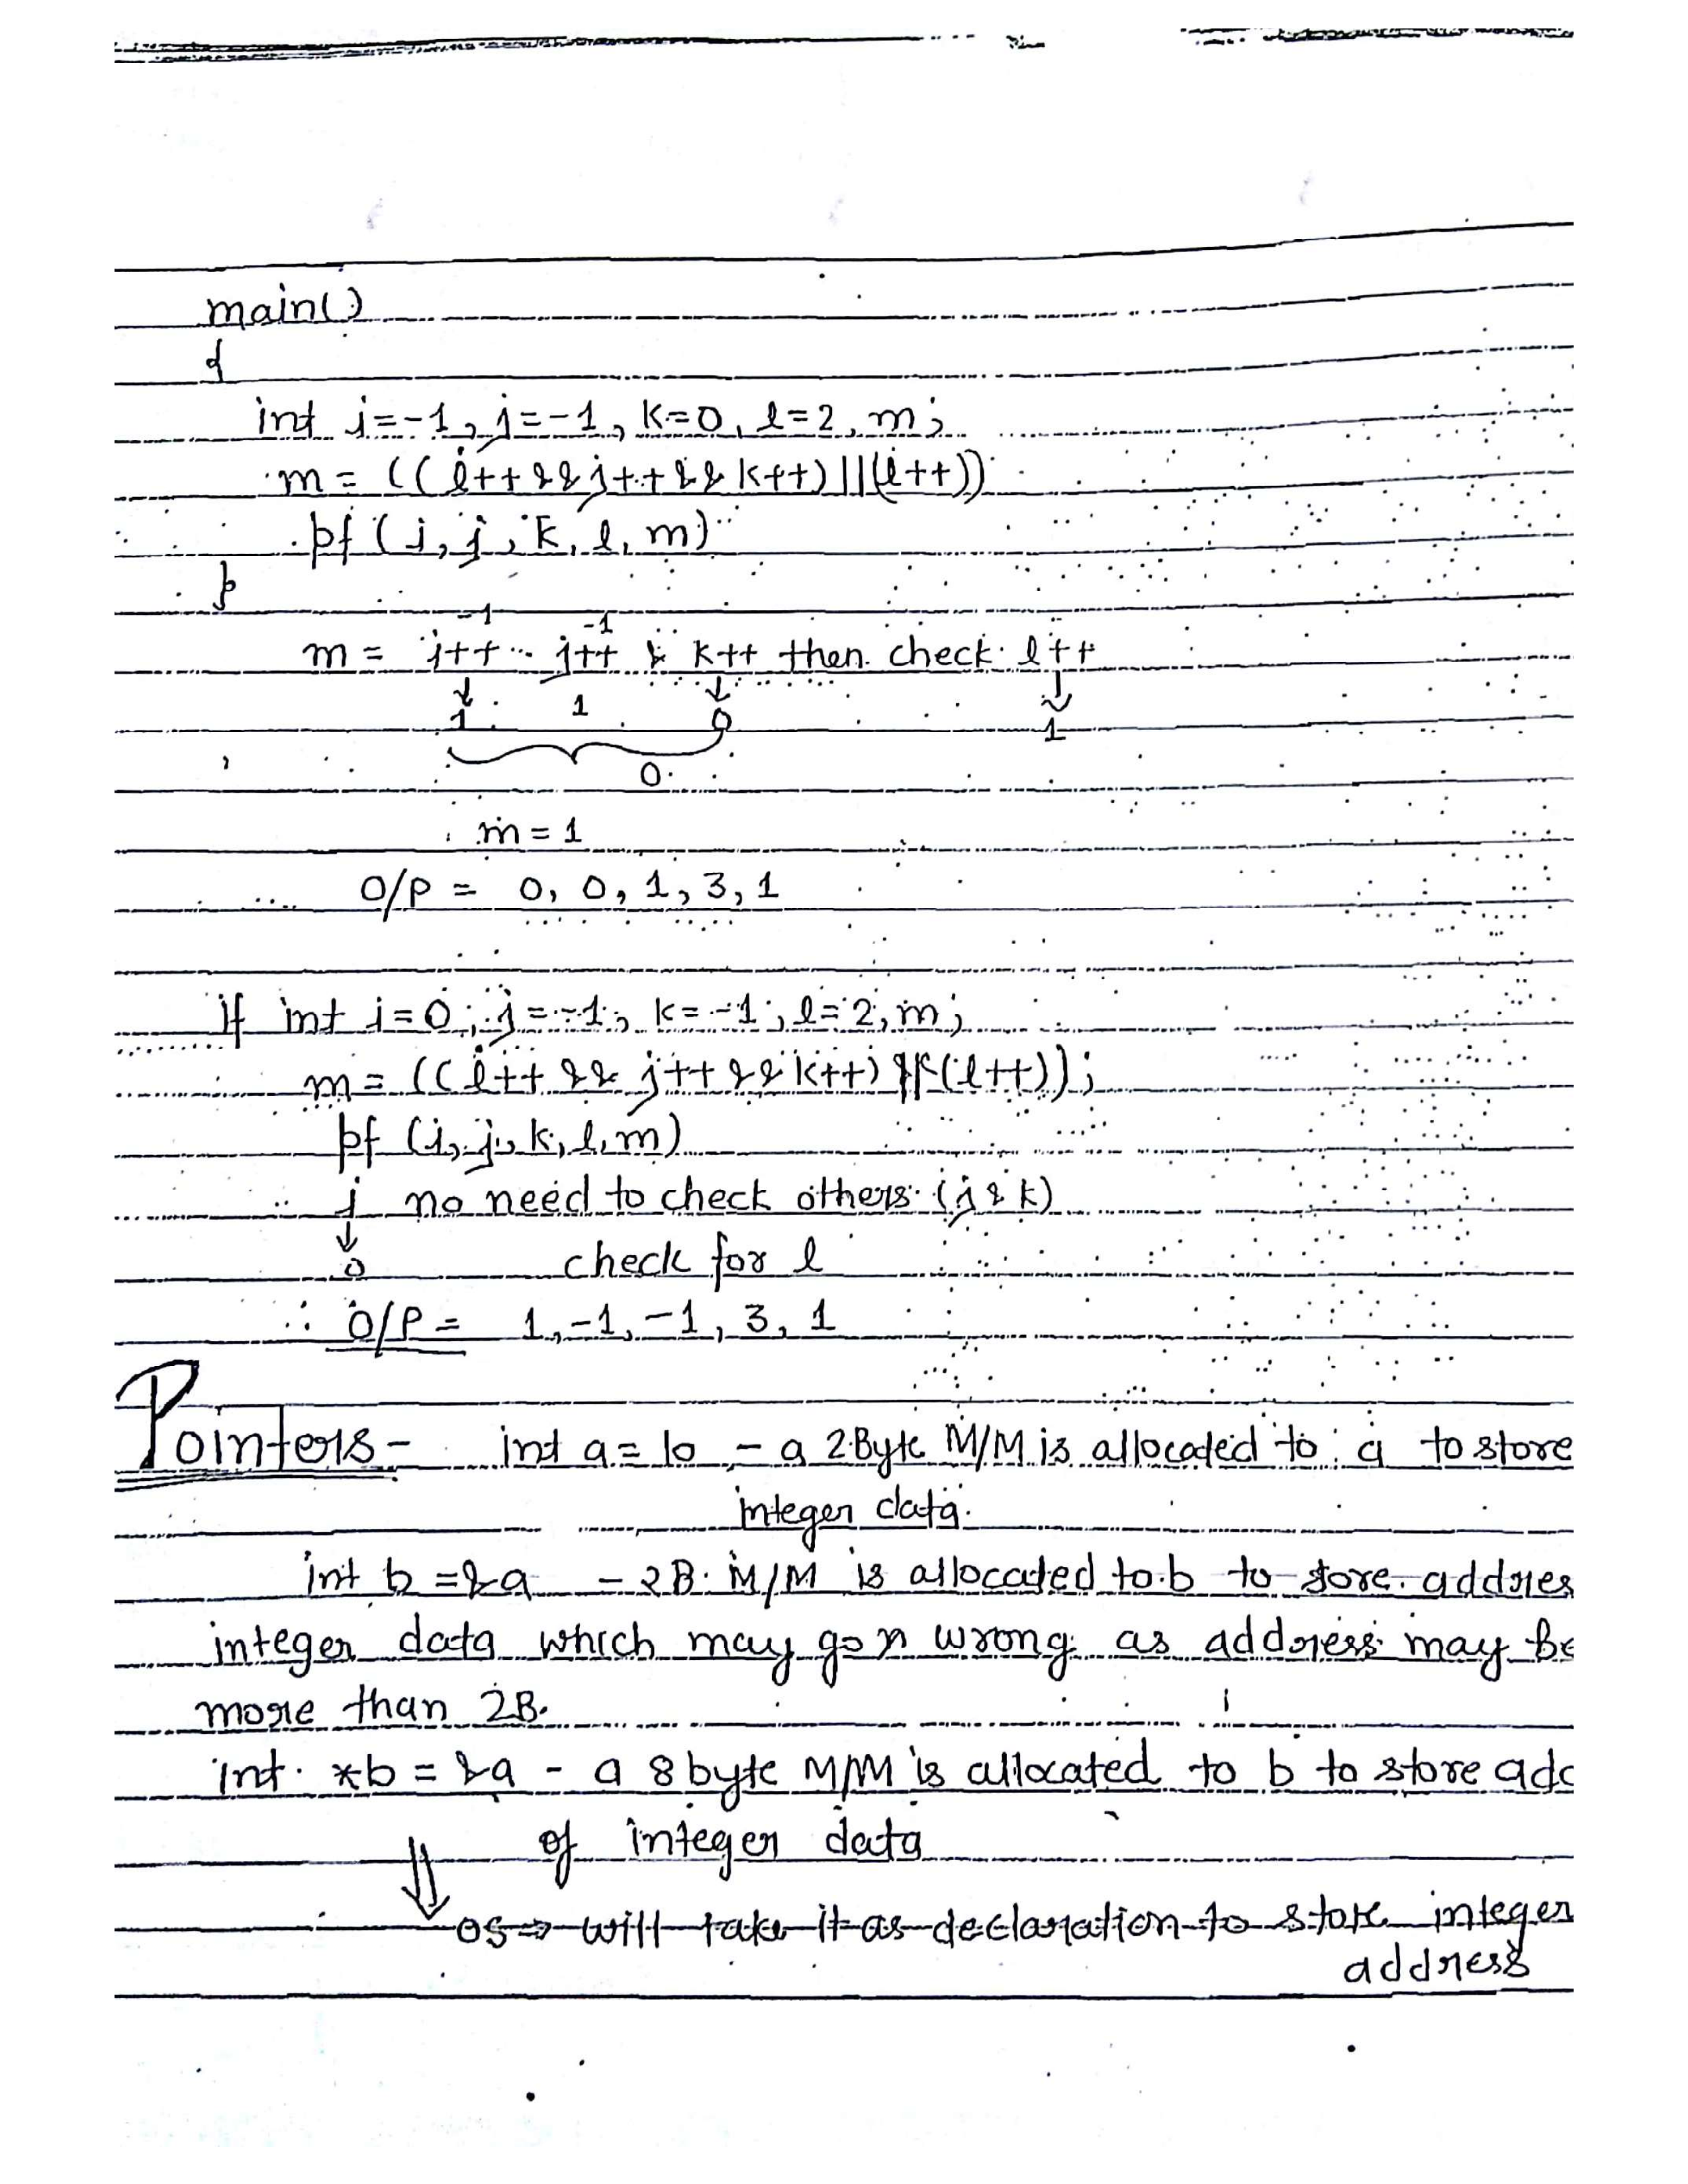 main()
{
int i=-1, j=-1, k=0, l=2, m;
m = ((i++ && j++ && k++) || (l++))
pf (i, j, k, l, m)
}
-1 -1
m = i++ .. j++ & k++ then check l++
1 1 0 1
0
m = 1
O/P = 0, 0, 1, 3, 1
if int i=0, j=-1, k=-1, l=2, m;
m = ((i++ && j++ && k++) || (l++));
pf (i, j, k, l, m)
i no need to check others (j & k)
0 check for l
∴ O/P = 1, -1, -1, 3, 1
Pointers - int a = 10 - a 2 Byte M/M is allocated to a to store
integer data.
int b = &a - 2B. M/M is allocated to b to store addres
integer data which may go wrong as address may be
more than 2B.
int *b = &a - a 8 byte M/M is allocated to b to store add
of integer data
⇓ OS ⇒ will take it as declaration to store integer
address